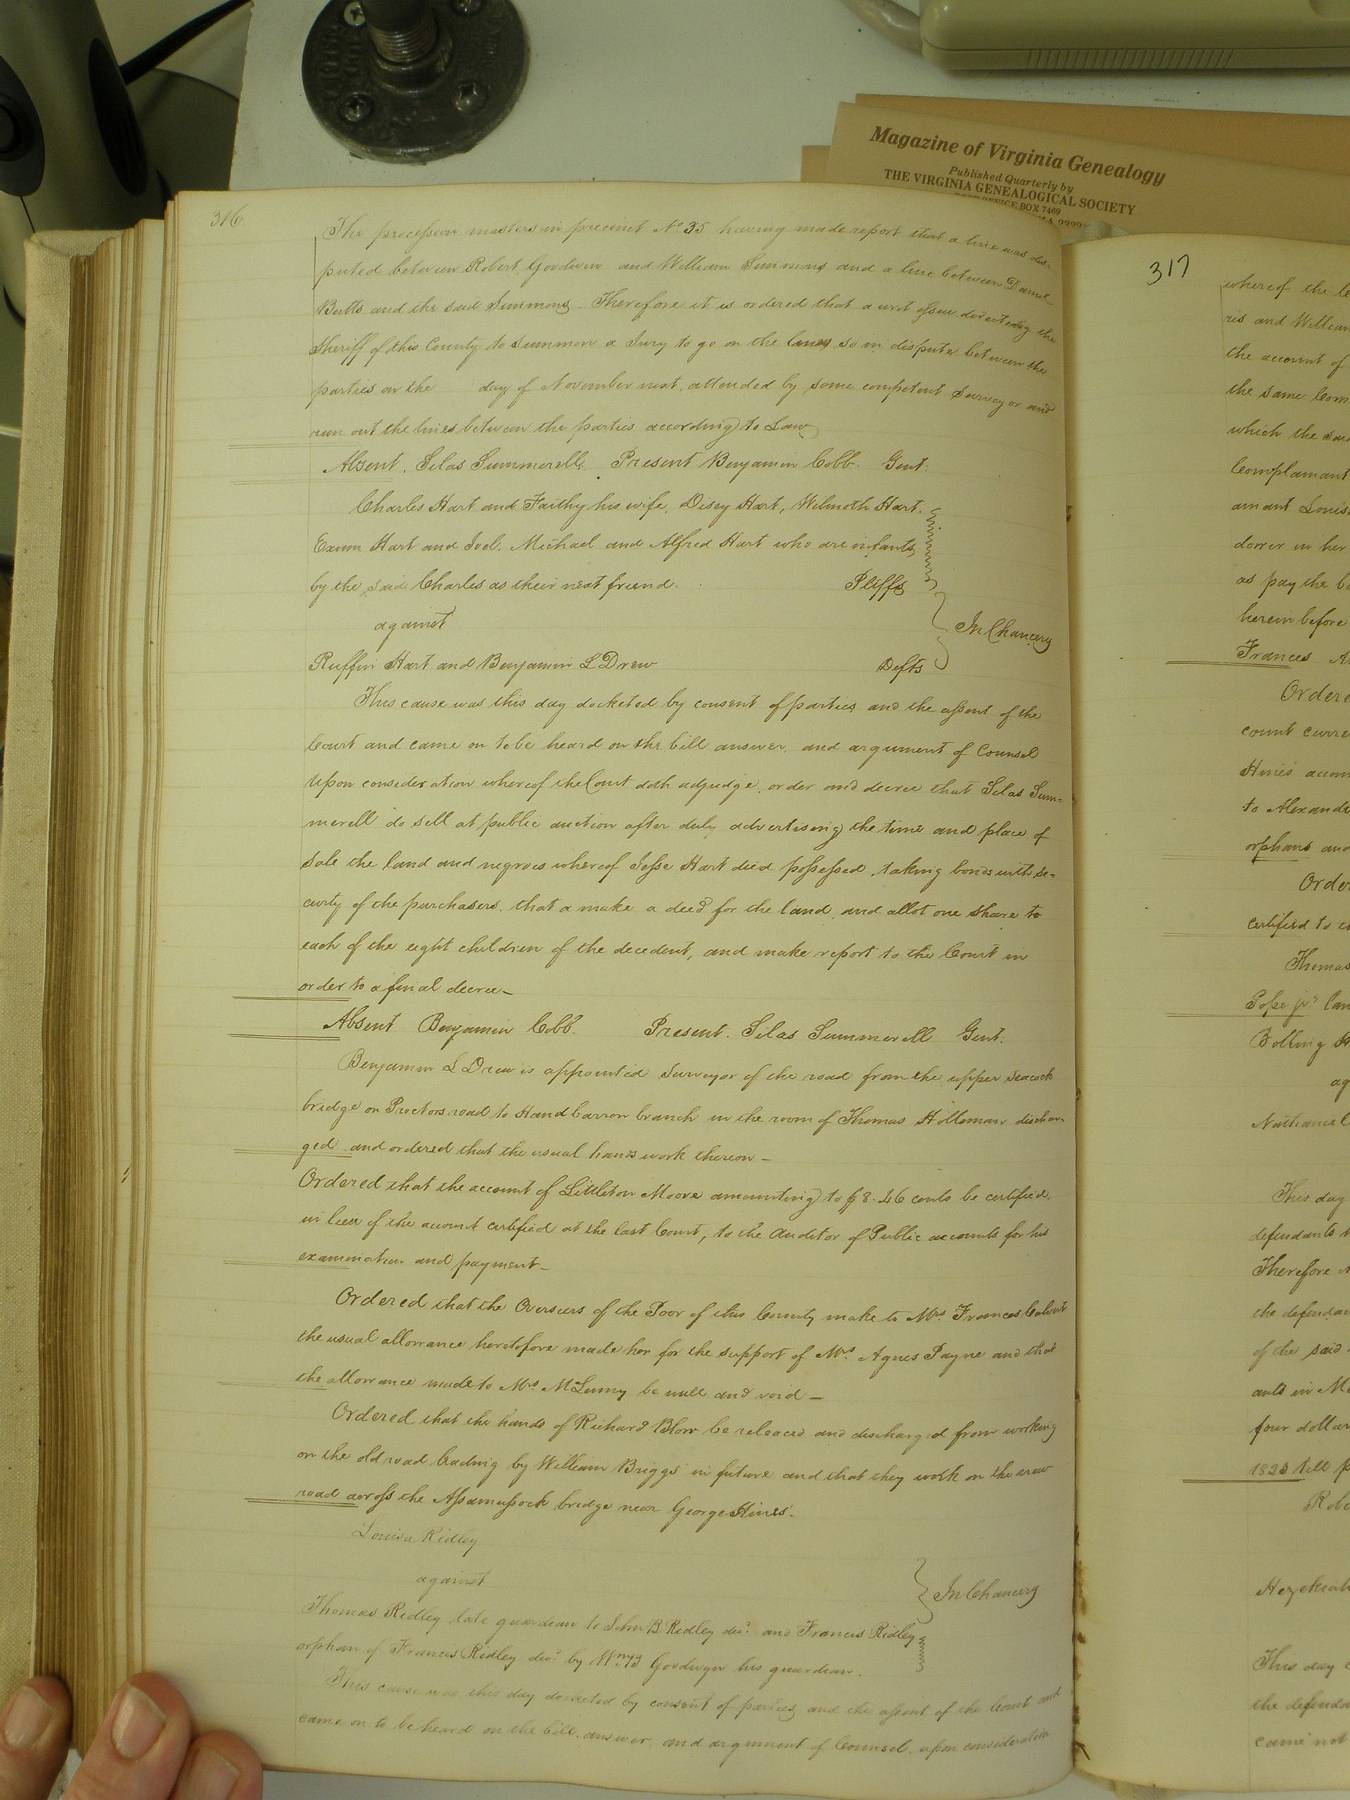 Magazine of Virginia Genealogy
Published Quarterly by
THE VIRGINIA GENEALOGICAL SOCIETY
BOX 7469
316
The procession masters in precinct No 35 having made report that a line was dis-
puted between Robert Goodwin and William Simmons and a line between Daniel
Butts and the said Simmons. Therefore it is ordered that a writ issue directing the
Sheriff of this County to summon a Jury to go on the lines so in dispute between the
parties on the day of November next, attended by some competent Surveyor and
run out the lines between the parties according to Law
Absent. Silas Summerell. Present Benjamin Cobb. Gent.
Charles Hart and Faithy his wife, Disey Hart, Wilmoth Hart.
Exum Hart and Joel, Michael and Alfred Hart who are infants
by the said Charles as their next friend. Pltffs
against
In Chancery
Ruffin Hart and Benjamin L Drew Defts
This cause was this day docketed by consent of parties and the assent of the
Court and came on to be heard on the bill answer, and argument of Counsel
Upon consideration whereof the Court doth adjudge, order and decree that Silas Sum-
merell do sell at public auction after duly advertising the time and place of
Sale the land and negroes whereof Jesse Hart died possessed, taking bonds with se-
curity of the purchasers, that a make a deed for the land and allot one share to
each of the eight children of the decedent, and make report to the Court in
order to a final decree
Absent Benjamin Cobb. Present. Silas Summerell Gent.
Benjamin L Drew is appointed Surveyor of the road from the upper Seacock
bridge on Proctors road to Handbarrow branch in the room of Thomas Holleman dischar-
ged and ordered that the usual hands work thereon
Ordered that the account of Littleton Moore amounting to $8.46 cents be certified,
in lieu of the account certified at the last Court, to the Auditor of Public accounts for his
examination and payment
Ordered that the Overseers of the Poor of this County make to Mrs Frances Calvert
the usual allowance heretofore made her for the support of Mrs Agnes Payne and that
the allowance made to Mrs McLemy be null and void
Ordered that the hands of Richard Blow be released and discharged from working
on the old road leading by William Briggs' in future and that they work on the new
road across the Assamussock bridge near George Hines'.
Louisa Ridley
against
In Chancery
Thomas Ridley late guardian to John B Ridley decd. and Francis Ridley
orphan of Francis Ridley decd. by Goodwyn his guardian.
This cause was this day docketed by consent of parties and the assent of the Court and
came on to be heard on the bill, answer, and argument of Counsel, upon consideration
317
whereof the
ris and William
the account of
the same
which the said
Complainant
amant Louis
derer in her
as pay the
herein before
Frances
Order
count curre
Hines accou
to Alexand
orphans and
Order
certified to
Thomas
Pope jr.
Bolling
ag
Nathaniel
This day
defendants
Therefore
the defendan
of the said
ants in
four dollar
till
Robe
Hezekiah
This day
the defenda
came not